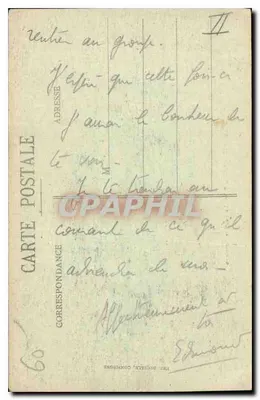 VI
rentrer au groupe.
J'espère que cette fois-ci
j'aurai le bonheur de
te voir.
Je te tiendrai au
courant de ce qu'il
adviendra de moi.
Affectueusement à
toi
Edmond
60
CARTE POSTALE
CORRESPONDANCE
ADRESSE
M
CPAPHIL